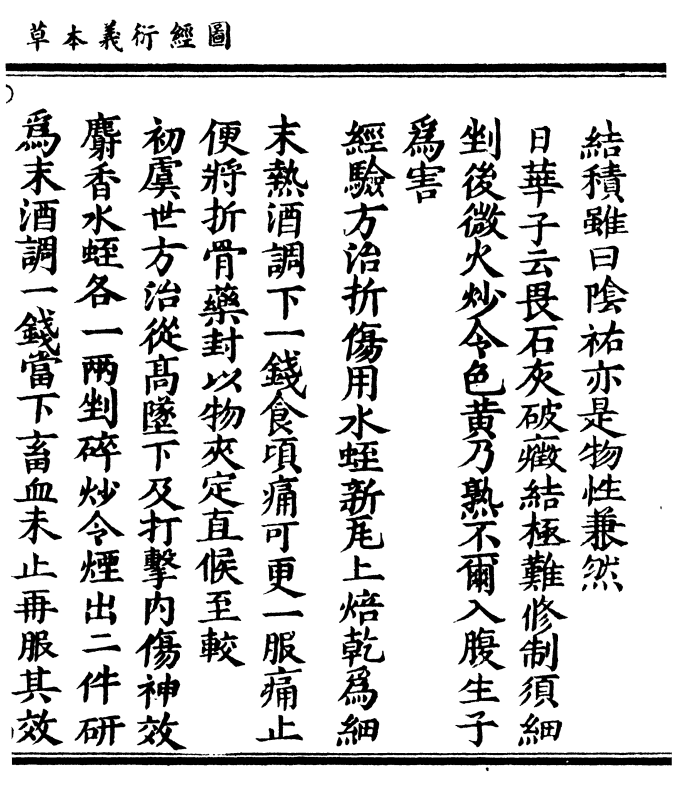 圖經衍義本草
結積雖曰陰祐亦是物性兼然
日華子云畏石灰破癥結極難修制須細
剉後微火炒令色黃乃熟不爾入腹生子
爲害
經驗方治折傷用水蛭新瓦上焙乾爲細
末熱酒調下一錢食頃痛可更一服痛止
便將折骨藥封以物夾定直候至較
初虞世方治從高墜下及打擊內傷神效
麝香水蛭各一兩剉碎炒令煙出二件研
爲末酒調一錢當下畜血未止再服其效